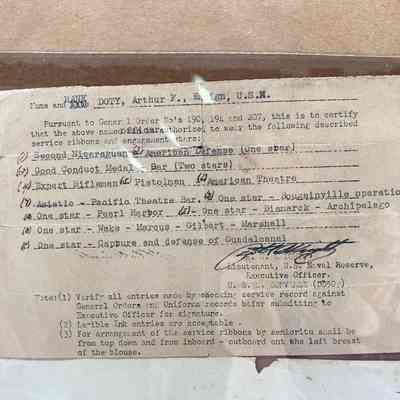 RANK
Name and DOTY, Arthur F., Ensign, U.S.N.
Pursuant to General Order No's 190, 194 and 207, this is to certify
that the above named officer authorized to wear the following described
service ribbons and engagement stars:
(1) Second Nicaraguan (2) American Defense (one star)
(3) Good Conduct Medal Bar (Two stars)
(4) Expert Rifleman (5) Pistolman (6) American Theatre
(7) Asiatic - Pacific Theatre Bar. One star - Bougainville operation
One star - Pearl Harbor One star - Bismarck - Archipelago
One star - Wake - Marcus - Gilbert - Marshall
One star - Capture and defense of Guadalcanal
Lieutenant, U.S. Naval Reserve,
Executive Officer.
U.S.S. (DD509)
Note: (1) Verify all entries made by checking service record against
General Orders and Uniform records before submitting to
Executive Officer for signature.
(2) Legible Ink entries are acceptable.
(3) For arrangement of the service ribbons by seniority shall be
from top down and from inboard - outboard on the left breast
of the blouse.